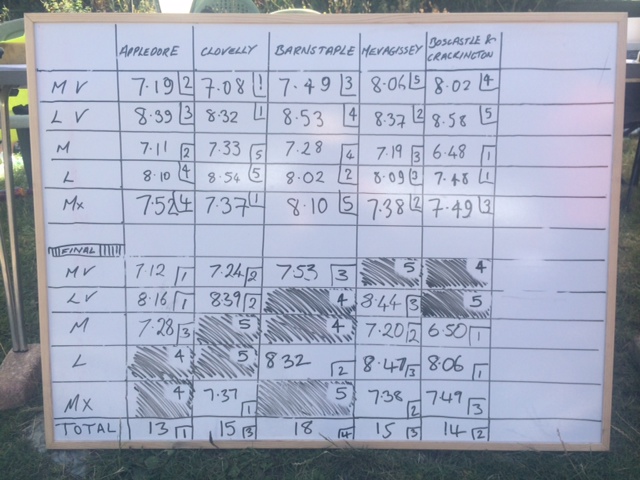 APPLEDORE CLOVELLY BARNSTAPLE MEVAGISSEY BOSCASTLE & CRACKINGTON
MV 7.19 2 7.08 1 7.49 3 8.06 5 8.02 4
LV 8.39 3 8.32 1 8.53 4 8.37 2 8.58 5
M 7.11 2 7.33 5 7.28 4 7.19 3 6.48 1
L 8.10 4 8.54 5 8.02 2 8.09 3 7.48 1
Mx 7.52 4 7.37 1 8.10 5 7.38 2 7.49 3
FINAL
MV 7.12 1 7.24 2 7.53 3 5 4
LV 8.16 1 839 2 4 8.44 3 5
M 7.28 3 5 4 7.20 2 6.50 1
L 4 5 832 2 8.47 3 8.06 1
MX 4 7.37 1 5 7.38 2 7.49 3
TOTAL 13 1 15 3 18 4 15 3 14 2